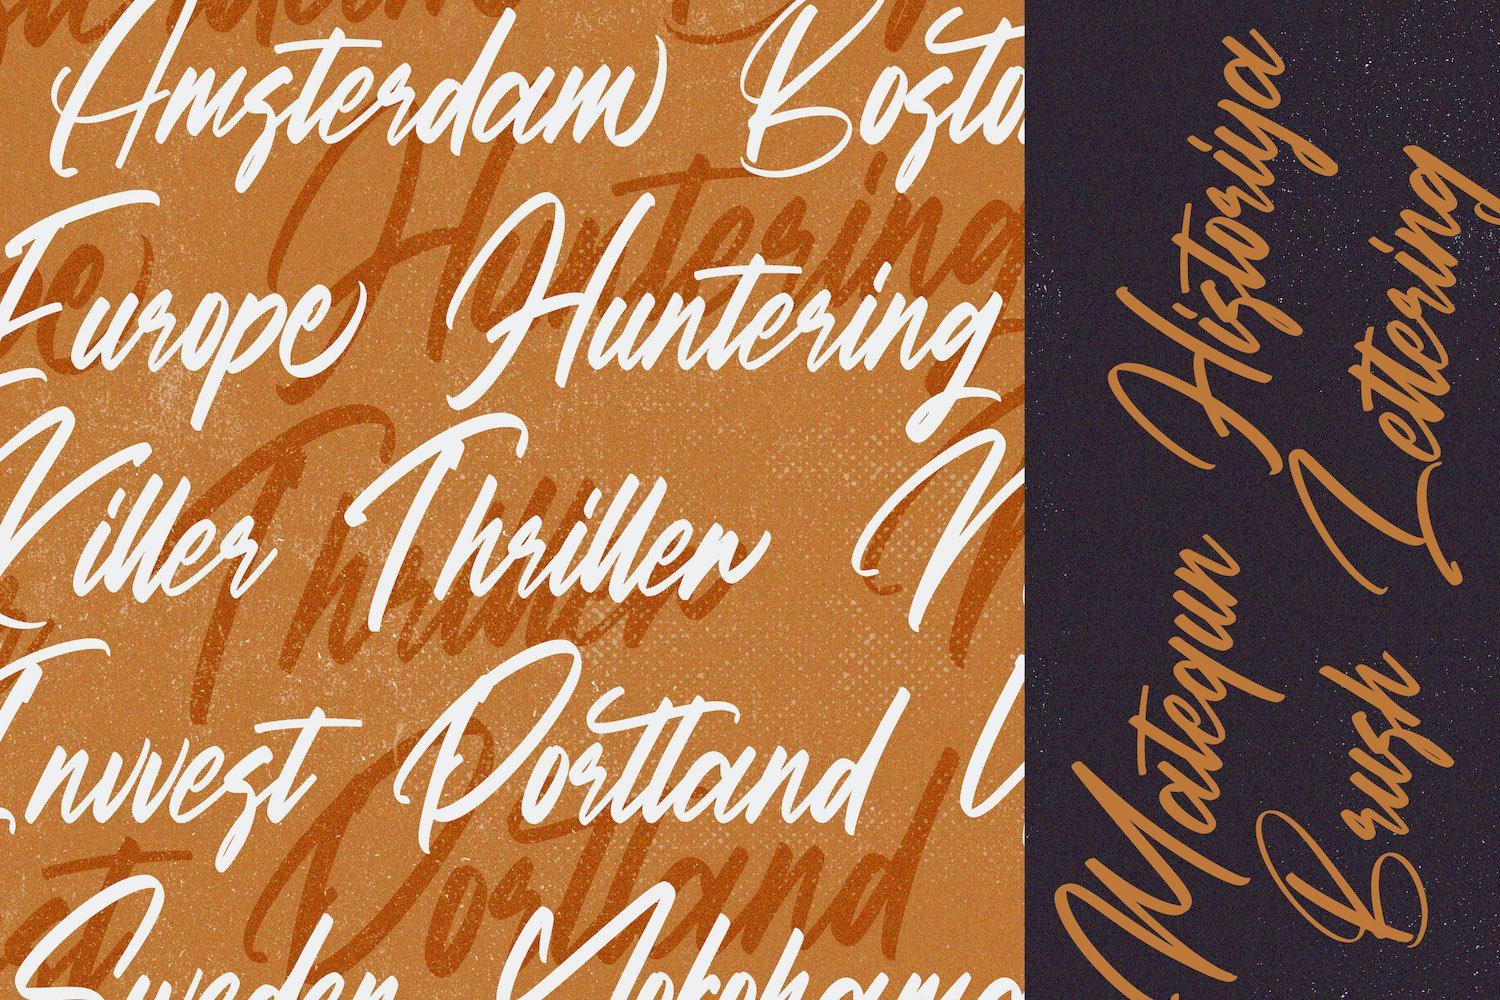 Amsterdam Boston
Europe Huntering
Killer Thriller
Invvest Portland
Sweden Yokohama
Matequn Historiya
Brush Lettering